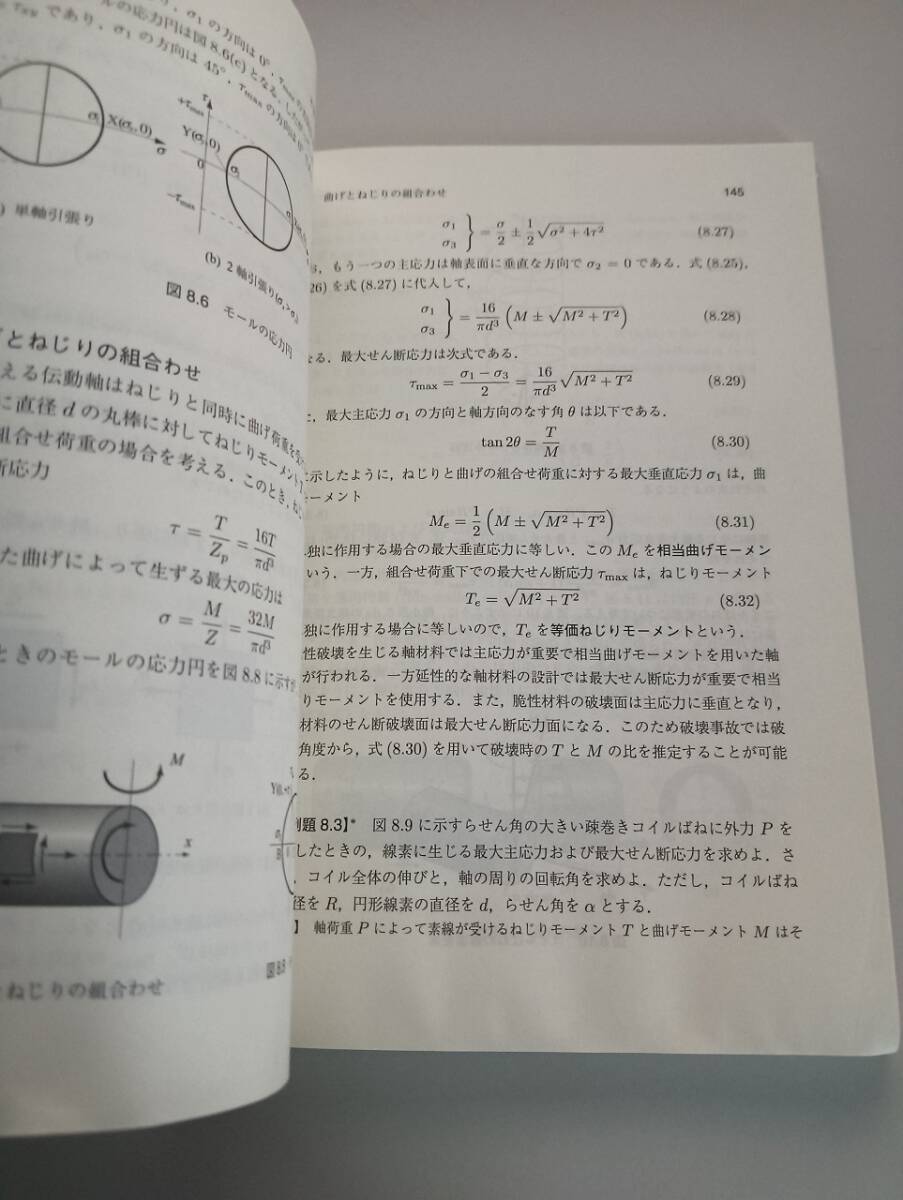 σ₁の方向は0°,τmax
の応力円は図8.6(c)となる.した
であり,σ₁の方向は45°,τmaxの方向は0°
τ
+τmax
Y(σᵧ,0)
X(σₓ,0)
σ
0
σ₁
−τmax
単軸引張り
(b) 2軸引張り(σₓ>σᵧ)
図8.6 モールの応力円
とねじりの組合わせ
える伝動軸はねじりと同時に曲げ荷重を受
に直径dの丸棒に対してねじりモーメントT
組合せ荷重の場合を考える.このとき,ねじ
断応力
τ = T/Zp = 16T/πd³
た曲げによって生ずる最大の応力は
σ = M/Z = 32M/πd³
ときのモールの応力円を図8.8に示す
M
x
図8.8
ねじりの組合わせ
曲げとねじりの組合わせ 145
σ₁ σ₃ } = σ/2 ± 1/2 √(σ² + 4τ²) (8.27)
,もう一つの主応力は軸表面に垂直な方向でσ₂ = 0である.式(8.25),
26)を式(8.27)に代入して,
σ₁ σ₃ } = 16/πd³ (M ± √(M² + T²)) (8.28)
なる.最大せん断応力は次式である.
τmax = (σ₁ − σ₃)/2 = 16/πd³ √(M² + T²) (8.29)
た,最大主応力σ₁の方向と軸方向のなす角θは以下である.
tan 2θ = T/M (8.30)
に示したように,ねじりと曲げの組合せ荷重に対する最大垂直応力σ₁は,曲
モーメント
Mₑ = 1/2 (M ± √(M² + T²)) (8.31)
独に作用する場合の最大垂直応力に等しい.このMₑを相当曲げモーメン
いう.一方,組合せ荷重下での最大せん断応力τmaxは,ねじりモーメント
Tₑ = √(M² + T²) (8.32)
独に作用する場合に等しいので,Tₑを等価ねじりモーメントという.
性破壊を生じる軸材料では主応力が重要で相当曲げモーメントを用いた軸
が行われる.一方延性的な軸材料の設計では最大せん断応力が重要で相当
りモーメントを使用する.また,脆性材料の破壊面は主応力に垂直となり,
材料のせん断破壊面は最大せん断応力面になる.このため破壊事故では破
角度から,式(8.30)を用いて破壊時のTとMの比を推定することが可能
る.
例題8.3】* 図8.9に示すらせん角の大きい疎巻きコイルばねに外力Pを
したときの,線素に生じる最大主応力および最大せん断応力を求めよ.さ
,コイル全体の伸びと,軸の周りの回転角を求めよ.ただし,コイルばね
径をR,円形線素の直径をd,らせん角をαとする.
】 軸荷重Pによって素線が受けるねじりモーメントTと曲げモーメントMはそ